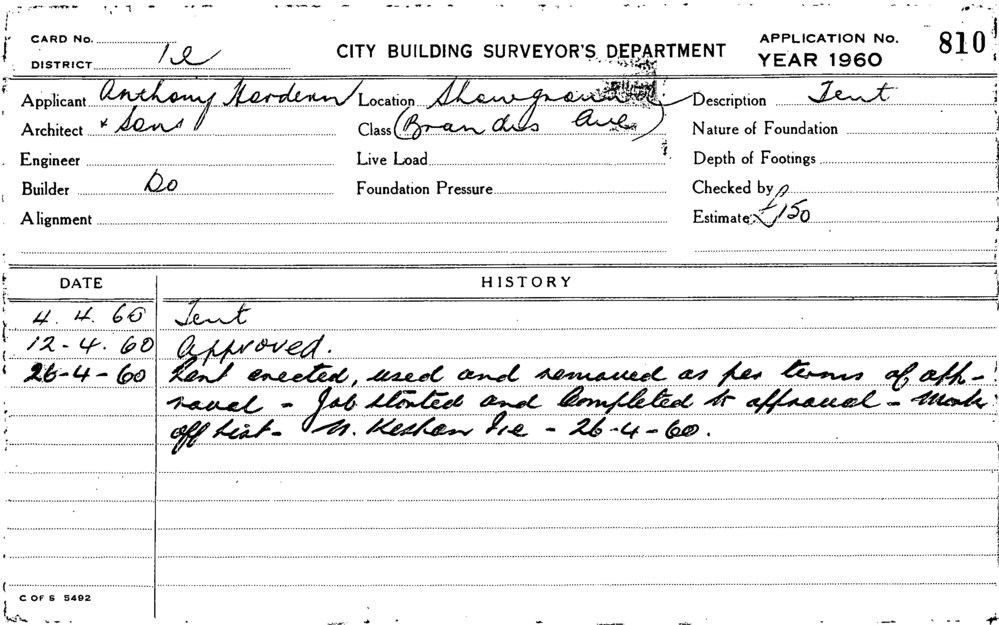 CARD No.
DISTRICT 1e
CITY BUILDING SURVEYOR'S DEPARTMENT
APPLICATION No. 810
YEAR 1960
Applicant Anthony Hordern
Location Showground
Description Tent
Architect & Sons
Class (Brandis Ave)
Nature of Foundation
Engineer
Live Load
Depth of Footings
Builder Do
Foundation Pressure
Checked by
Alignment
Estimate £150
DATE HISTORY
4. 4. 60 Tent
12-4. 60 Approved.
26-4-60 Tent erected, used and removed as per terms of app-
roval - Job started and Completed to approval - Mark
off List - 1e - 26-4-60.
C OF S 5492